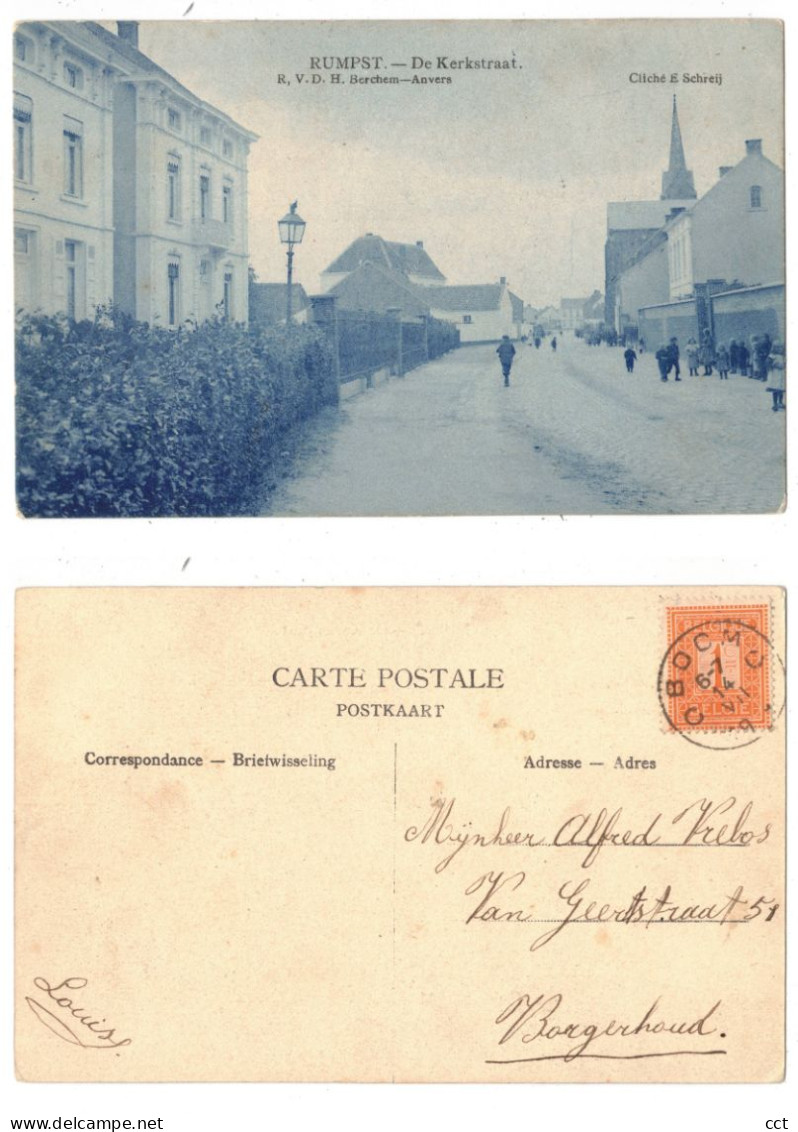 RUMPST. — De Kerkstraat.
R, V. D. H. Berchem—Anvers
Cliché E Schreij
CARTE POSTALE
POSTKAART
Correspondance — Briefwisseling
Adresse — Adres
BOCM
6-7
14
1
Mijnheer Alfred Vrebos
Van Geertstraat 51
Louis
Borgerhoud.
www.delcampe.net
cct